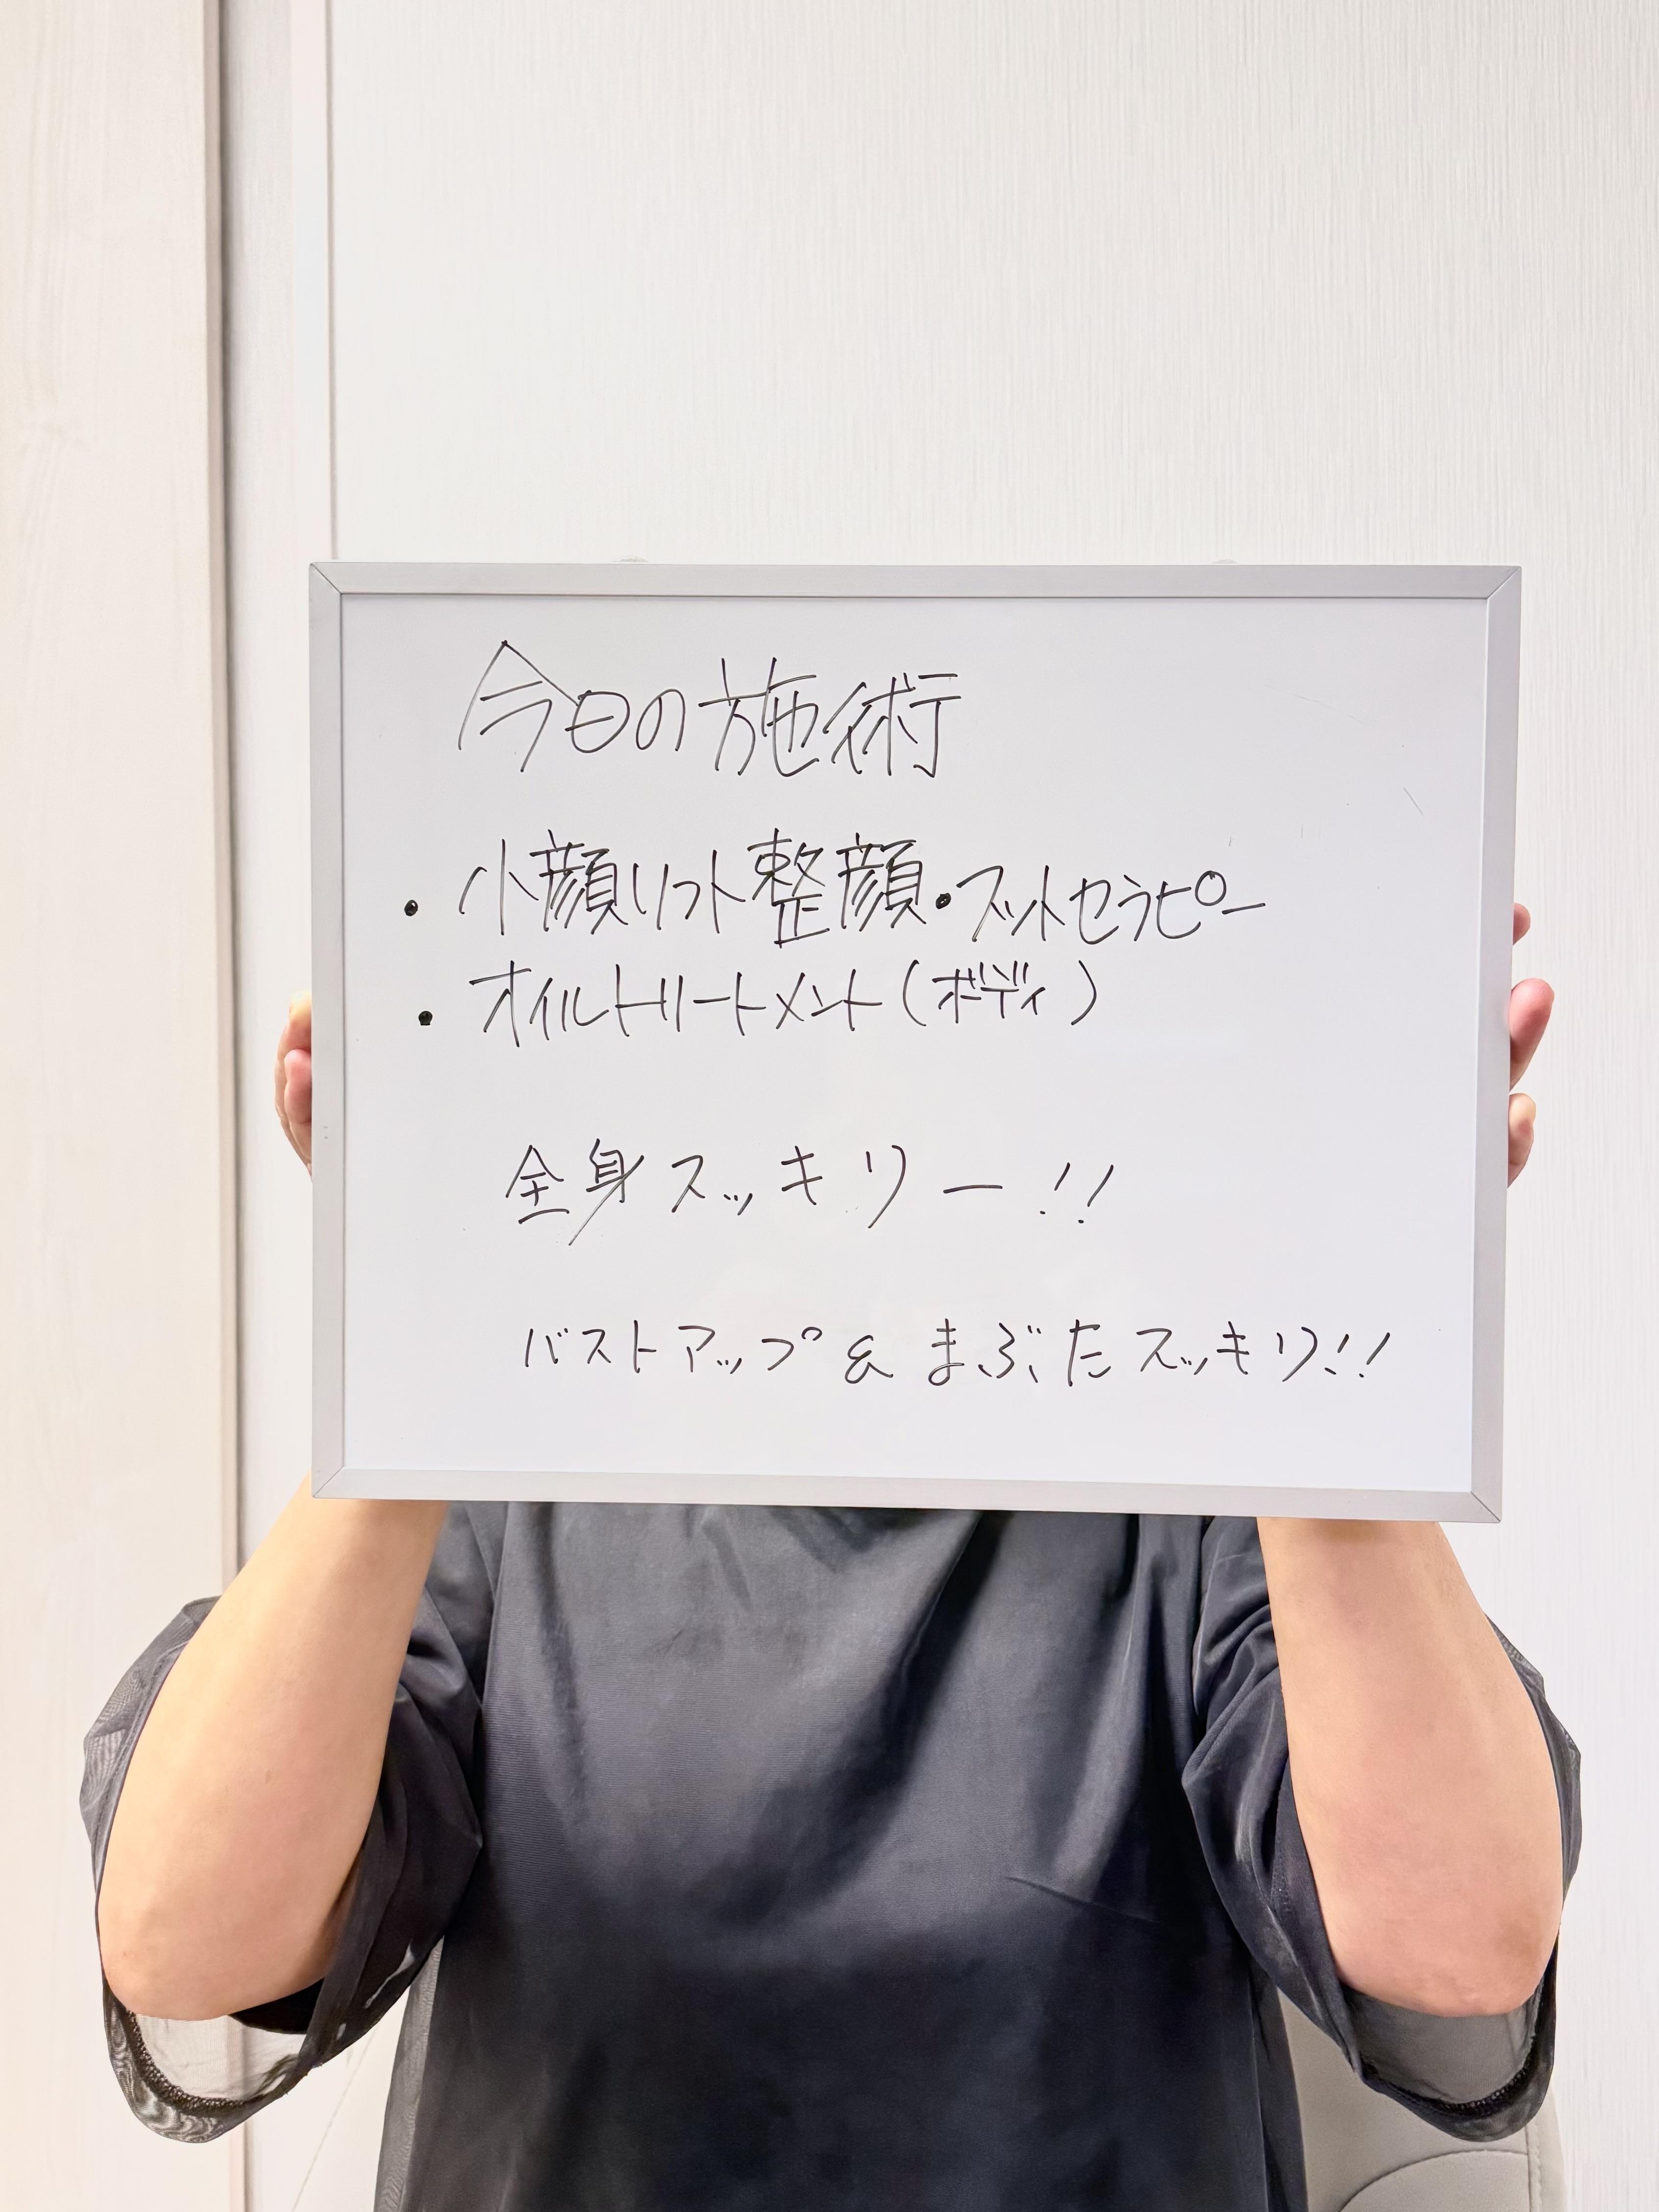 今日の施術
・小顔リフト整顔・フットセラピー
・オイルトリートメント(ボディ)
全身スッキリー!!
バストアップ&まぶたスッキリ!!